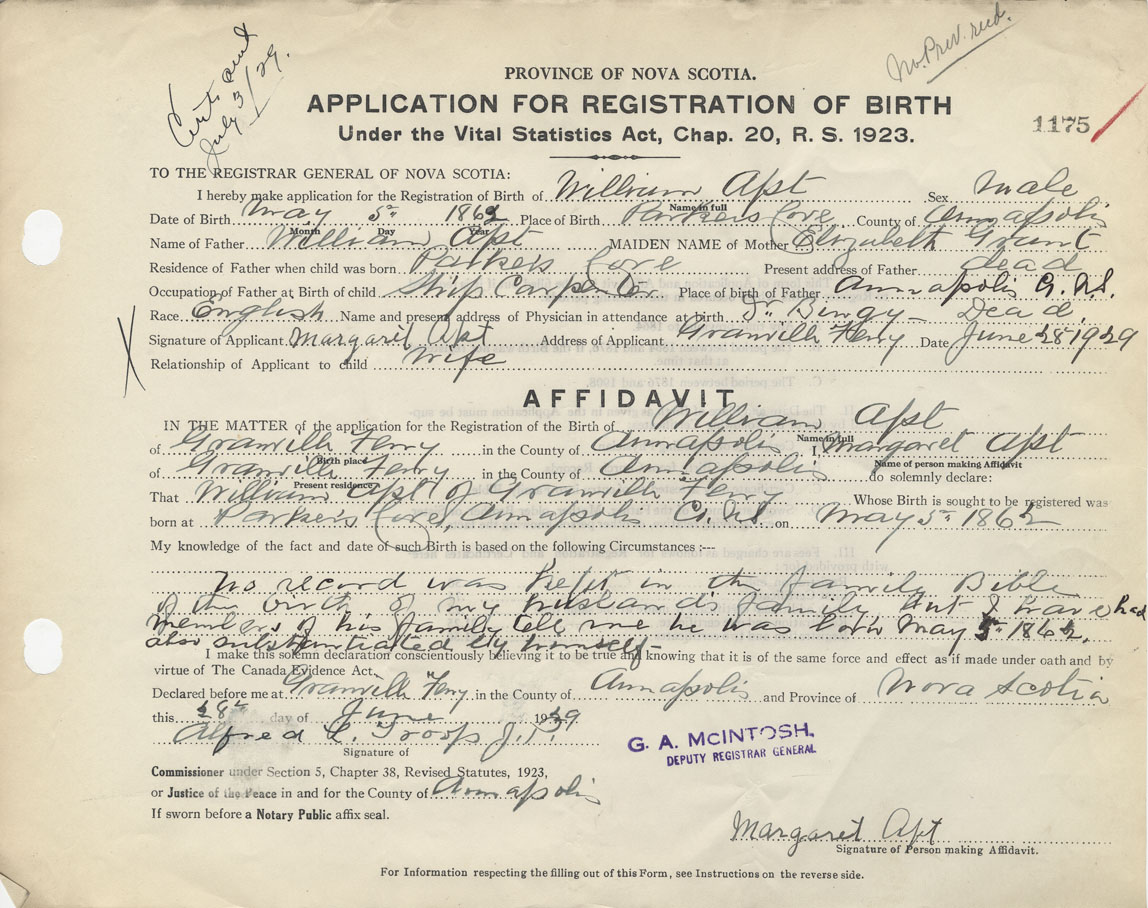 Certs. and
July 3/29.
No. Prev. recd.
PROVINCE OF NOVA SCOTIA.
APPLICATION FOR REGISTRATION OF BIRTH
Under the Vital Statistics Act, Chap. 20, R. S. 1923.
1175
TO THE REGISTRAR GENERAL OF NOVA SCOTIA:
I hereby make application for the Registration of Birth of William Apt Sex Male
Name in full
Date of Birth May 5th 1862 Place of Birth Parkers Cove County of Annapolis
Month Day Year
Name of Father William Apt MAIDEN NAME of Mother Elizabeth Grant
Residence of Father when child was born Parkers Cove Present address of Father dead
Occupation of Father at Birth of child Ship Carpenter Place of birth of Father Annapolis Co. N.S.
Race English Name and present address of Physician in attendance at birth Dr Bingy - Dead
Signature of Applicant Margaret Apt Address of Applicant Granville Ferry Date June 28 1929
Relationship of Applicant to child Wife
AFFIDAVIT
IN THE MATTER of the application for the Registration of the Birth of William Apt
Name in full
of Granville Ferry in the County of Annapolis I, Margaret Apt
Birth place Name of person making Affidavit
of Granville Ferry in the County of Annapolis do solemnly declare:
Present residence
That William Apt of Granville Ferry Whose Birth is sought to be registered was
born at Parker's Cove, Annapolis Co. N.S. on May 5th 1862
My knowledge of the fact and date of such Birth is based on the following Circumstances :---
No record was kept in the family Bible
of the birth of my husband's family but I have had
members of his family tell me he was born May 5th 1862.
also substantiated by himself -
I make this solemn declaration conscientiously believing it to be true and knowing that it is of the same force and effect as if made under oath and by
virtue of The Canada Evidence Act,
Declared before me at Granville Ferry in the County of Annapolis and Province of Nova Scotia
this 28th day of June 1929
Alfred L. Troop J.P.
Signature of
G. A. McINTOSH,
DEPUTY REGISTRAR GENERAL
Commissioner under Section 5, Chapter 38, Revised Statutes, 1923,
or Justice of the Peace in and for the County of Annapolis
If sworn before a Notary Public affix seal.
Margaret Apt
Signature of Person making Affidavit.
For Information respecting the filling out of this Form, see Instructions on the reverse side.